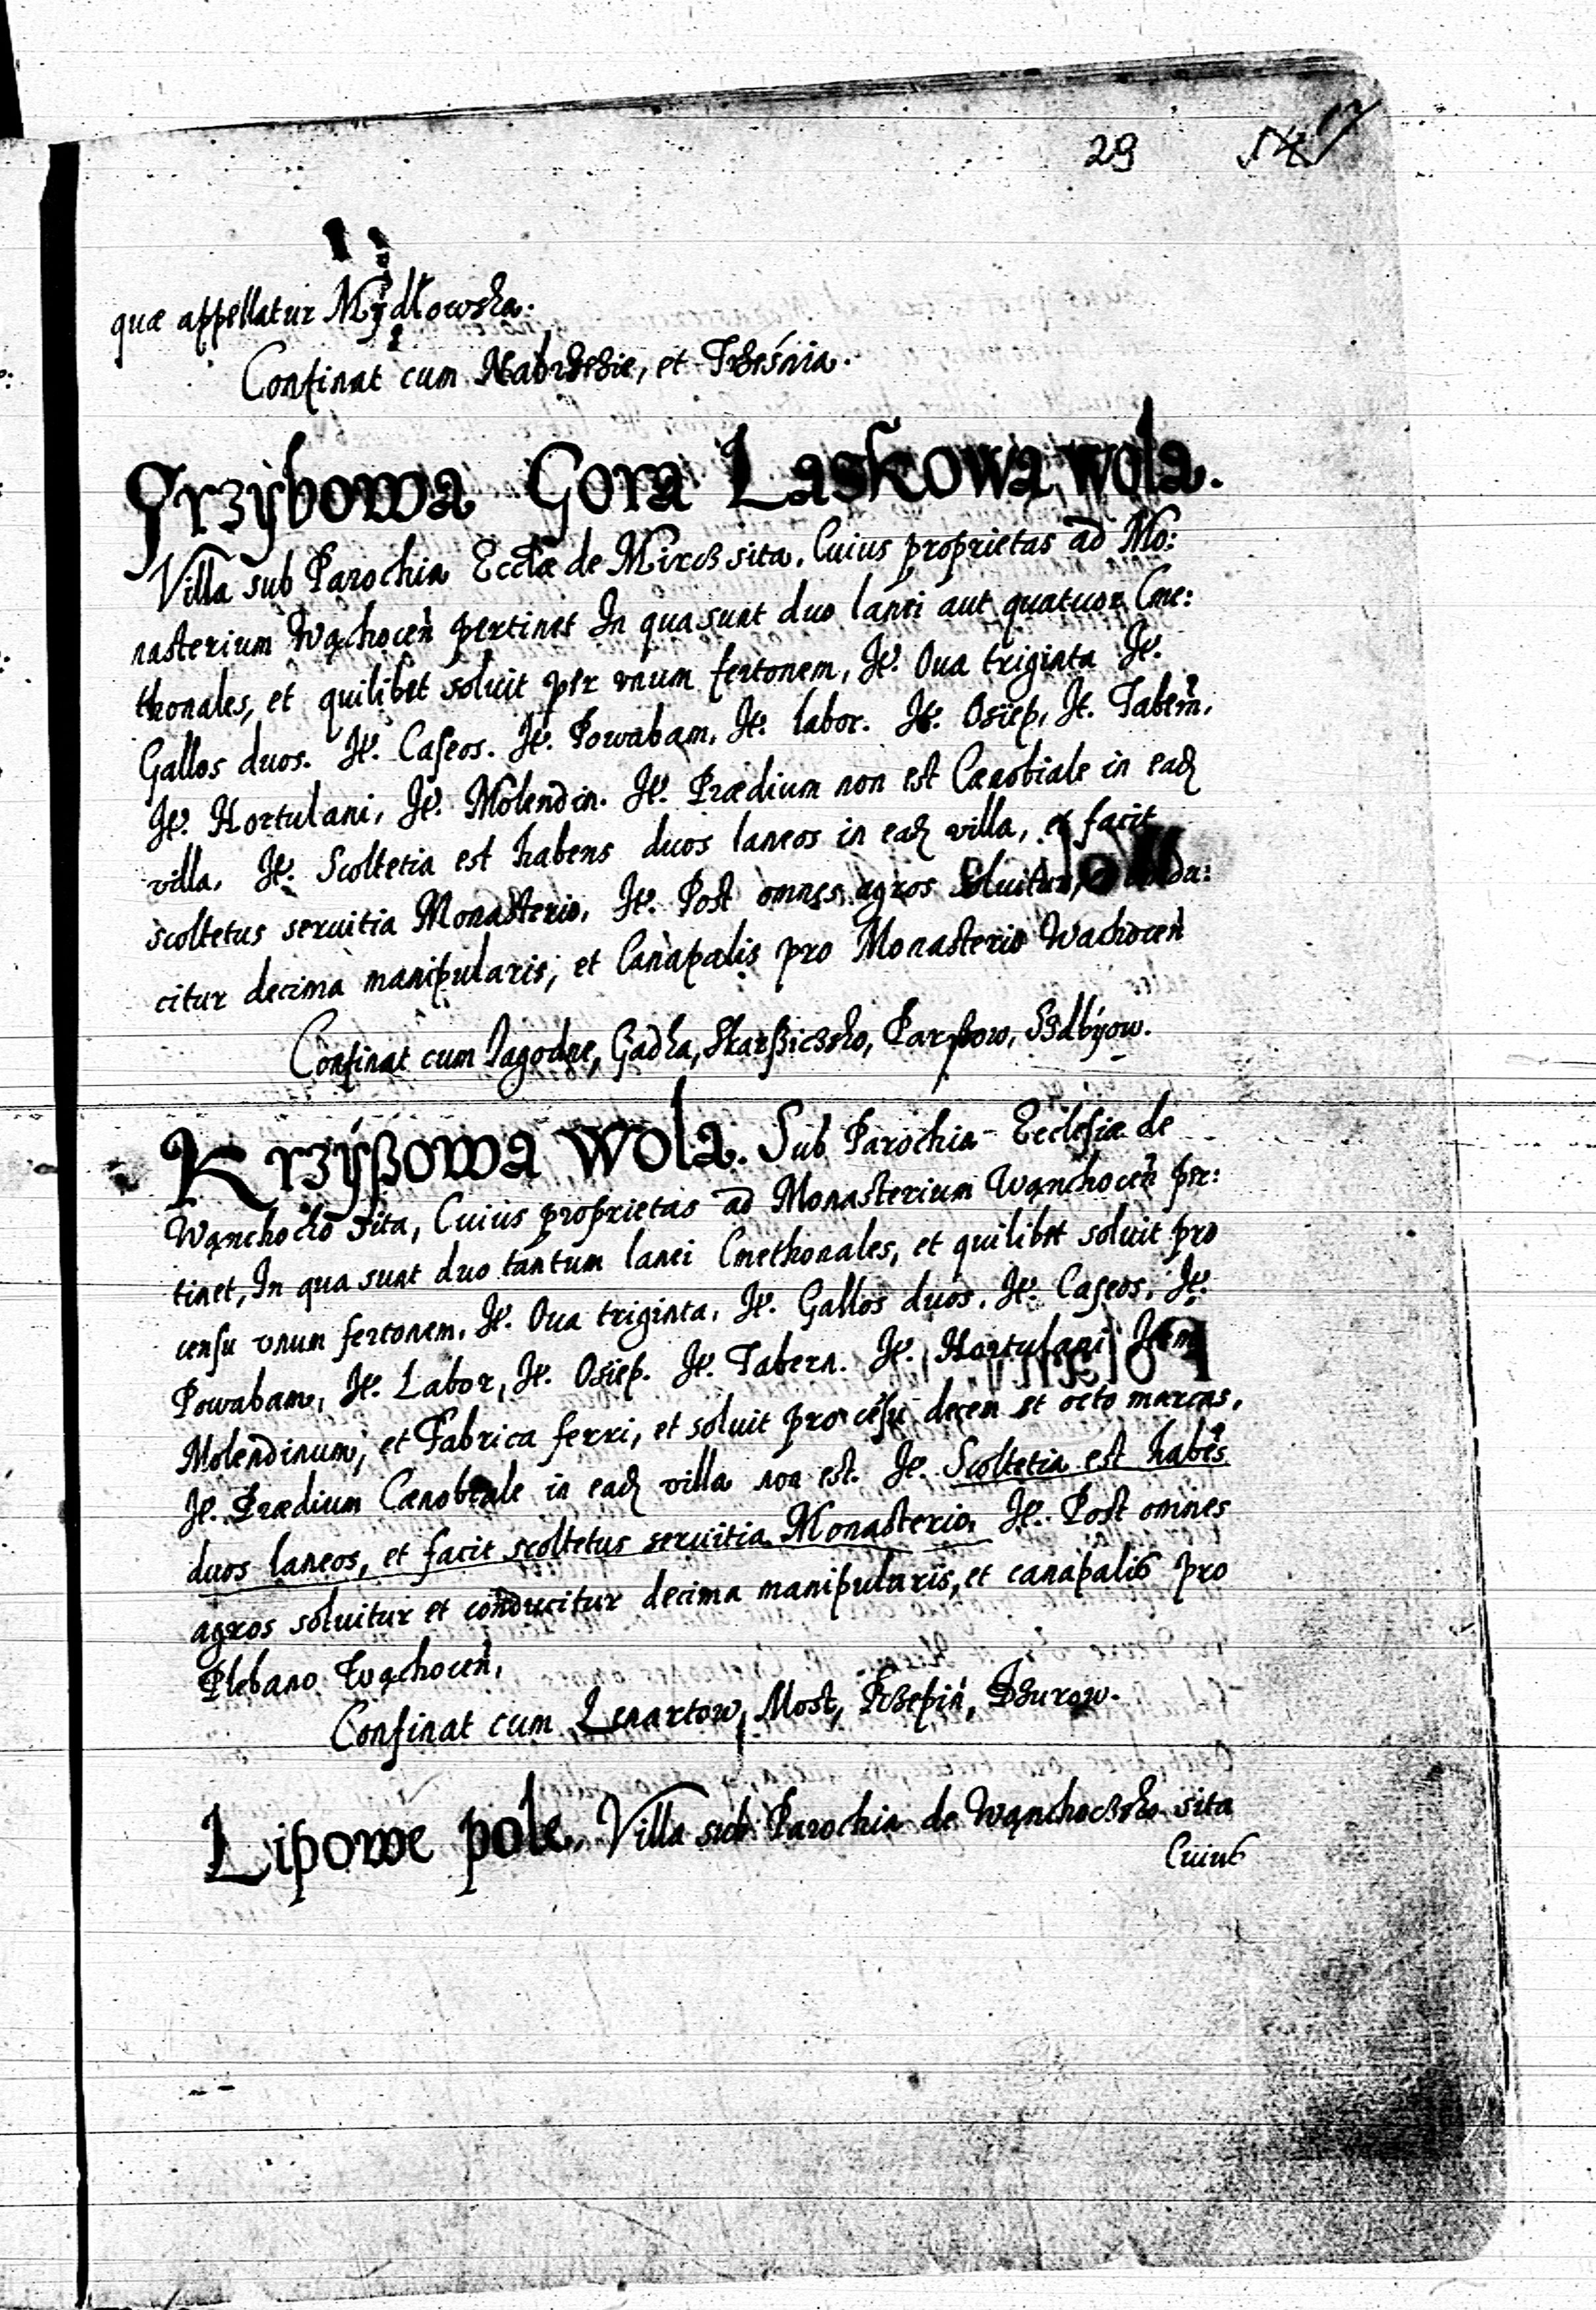 29
quæ appellatur Mÿdłowska.
Confinat cum Nabrzezie, et Trześnia.
Grzÿbowa Gora Laskowa wola.
Villa sub Parochia Eccłæ de Mircz sita. Cuius proprietas ad Mo:
nasterium Wąchoceń pertinet In qua sunt duo lanei aut quatuor Cme:
thonales, et quilibet soluit per vnum fertonem, It. Oua triginta It.
Gallos duos. It. Caseos. It. Powabam, It. labor. It. Osïep, It. Tabern.
It. Hortulani, It. Molendin. It. Prædium non est Cænobiale in eadꝫ
villa, It. Scoltetia est habens duos laneos in eadꝫ villa, et facit
scoltetus seruitia Monasterio, It. Post omnes agros soluitur, du:
citur decima manipularis, et Canapalis pro Monasterio Wachoceń
Confinat cum Jagodne, Gadka, Skarßiczsko, Parßow, Szdbÿow.
Krzÿßowa wola. Sub Parochia Ecclesiæ de
Wąnchocko sita, Cuius proprietas ad Monasterium Wąnchoceń per:
tinet, In qua sunt duo tantum lanei Cmethonales, et quilibet soluit pro
censu vnum fertonem, It. Oua triginta, It. Gallos duos, It. Caseos, It.
Powabam, It. Labor, It. Osïep. It. Tabern. It. Hortulani Item
Molendinum, et Fabrica ferri, et soluit pro cẽsu decem et octo marcas,
It. Prædium Cænobiale in eadꝫ villa non est. It. Scoltetia est habẽs
duos laneos, et facit scoltetus seruitia Monasterio, It. Post omnes
agros soluitur et conducitur decima manipularis, et canapalis pro
Plebano Wąchoceń,
Confinat cum Lenartow, Most, Rzepin, Dzurow.
Lipowe pole. Villa sub Parochia de Wąnchoczsko sita
Cuius